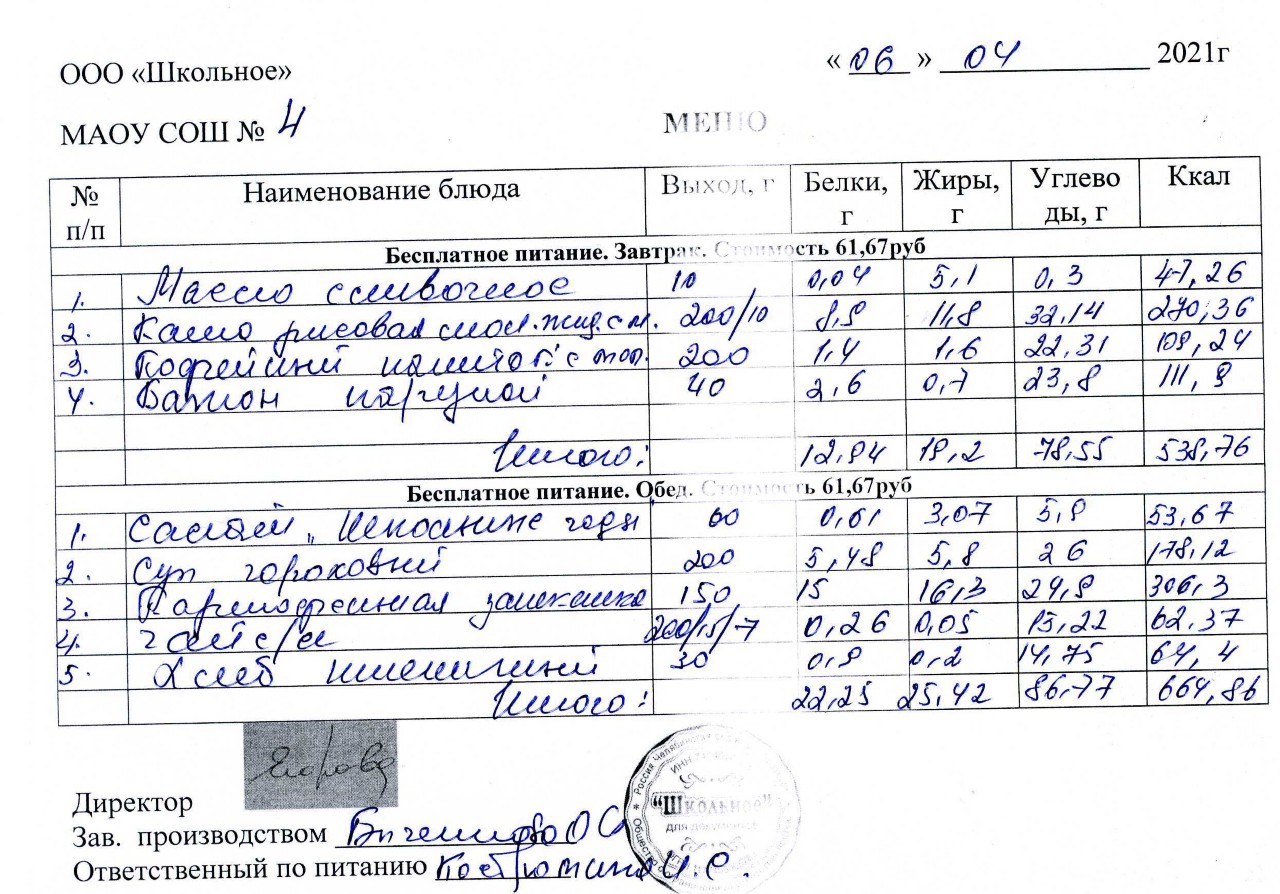 ООО «Школьное» « 06 » 04 2021г
МАОУ СОШ № 4 МЕНЮ
№ п/п Наименование блюда Выход, г Белки, г Жиры, г Углево ды, г Ккал
Бесплатное питание. Завтрак. Стоимость 61,67руб
1. Масло сливочное 10 0,04 5,1 0,3 47,26
2. Каша рисовая мол. жид. с м. 200/10 8,9 11,8 32,14 270,36
3. Кофейный напиток с мол. 200 1,4 1,6 22,31 109,24
4. Батон нарезной 40 2,6 0,7 23,8 111,9
Итого: 12,94 19,2 78,55 538,76
Бесплатное питание. Обед. Стоимость 61,67руб
1. Салат „Школьные годы" 60 0,61 3,07 5,9 53,67
2. Суп гороховый 200 5,48 5,8 26 178,12
3. Картофельная запеканка 150 15 16,3 24,9 306,3
4. Чай с/л 200/15/7 0,26 0,05 15,22 62,37
5. Хлеб пшеничный 30 0,9 0,2 14,75 64,4
Итого: 22,25 25,42 86,77 664,86
Егорова
Директор
Зав. производством О С
Ответственный по питанию И.С.
"Школьное"
для документов